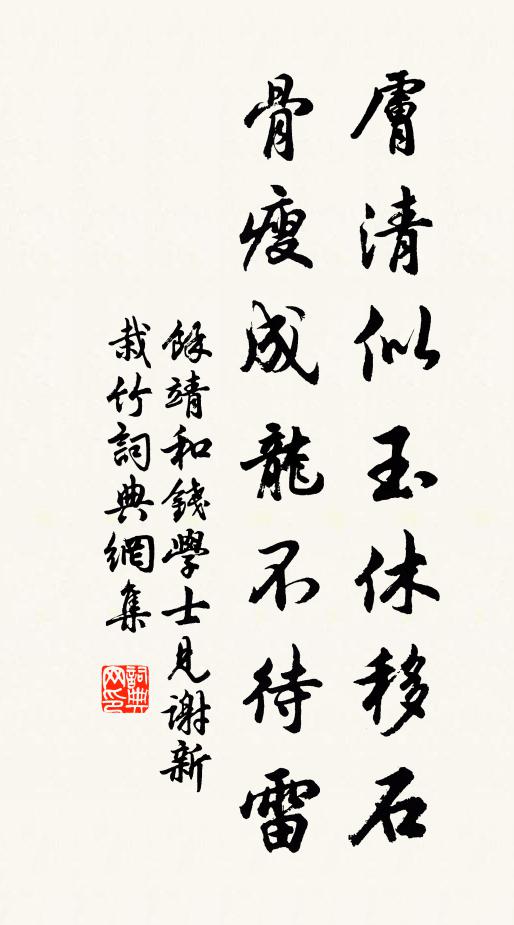 膚清似玉休移石
骨瘦成龍不待雷
餘靖和錢學士見謝新
栽竹詞典網集
詞典網印